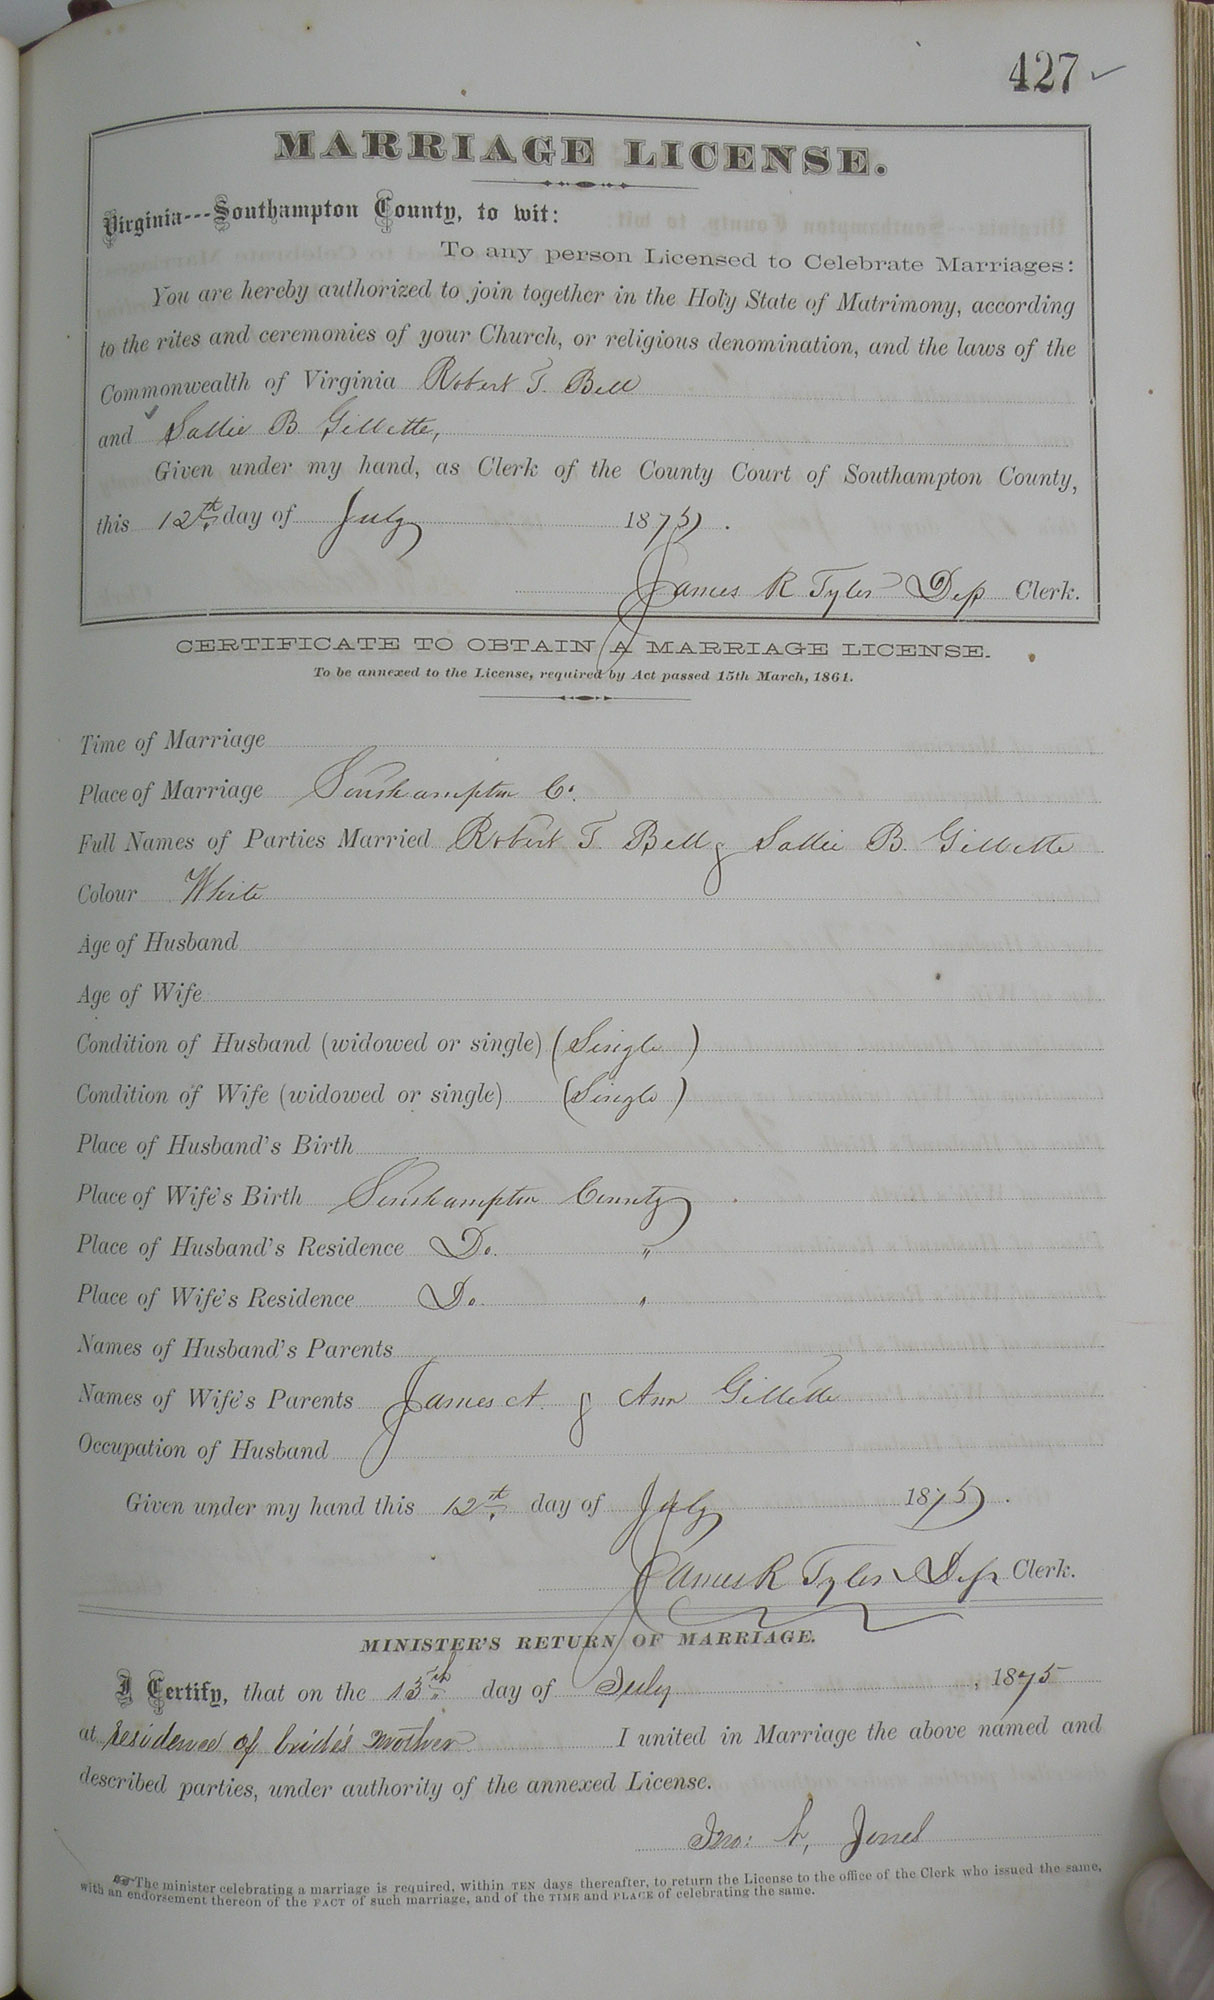 427 ✓
MARRIAGE LICENSE.
Virginia---Southampton County, to wit:
To any person Licensed to Celebrate Marriages:
You are hereby authorized to join together in the Holy State of Matrimony, according
to the rites and ceremonies of your Church, or religious denomination, and the laws of the
Commonwealth of Virginia Robert T. Bell
and Sallie B Gillette,
Given under my hand, as Clerk of the County Court of Southampton County,
this 12th day of July 1875.
James R Tyler Dep Clerk.
CERTIFICATE TO OBTAIN A MARRIAGE LICENSE.
To be annexed to the License, required by Act passed 15th March, 1861.
Time of Marriage
Place of Marriage Southampton Co.
Full Names of Parties Married Robert T Bell & Sallie B. Gillette
Colour White
Age of Husband
Age of Wife
Condition of Husband (widowed or single) (Single)
Condition of Wife (widowed or single) (Single)
Place of Husband's Birth
Place of Wife's Birth Southampton County
Place of Husband's Residence Do. "
Place of Wife's Residence Do. "
Names of Husband's Parents
Names of Wife's Parents James A. & Ann Gillette
Occupation of Husband
Given under my hand this 12th day of July 1875.
James R Tyler Dep Clerk.
MINISTER'S RETURN OF MARRIAGE.
I Certify, that on the 13th day of July, 1875
at residence of bride's mother I united in Marriage the above named and
described parties, under authority of the annexed License.
Jno: Jones
The minister celebrating a marriage is required, within TEN days thereafter, to return the License to the office of the Clerk who issued the same,
with an endorsement thereon of the FACT of such marriage, and of the TIME and PLACE of celebrating the same.